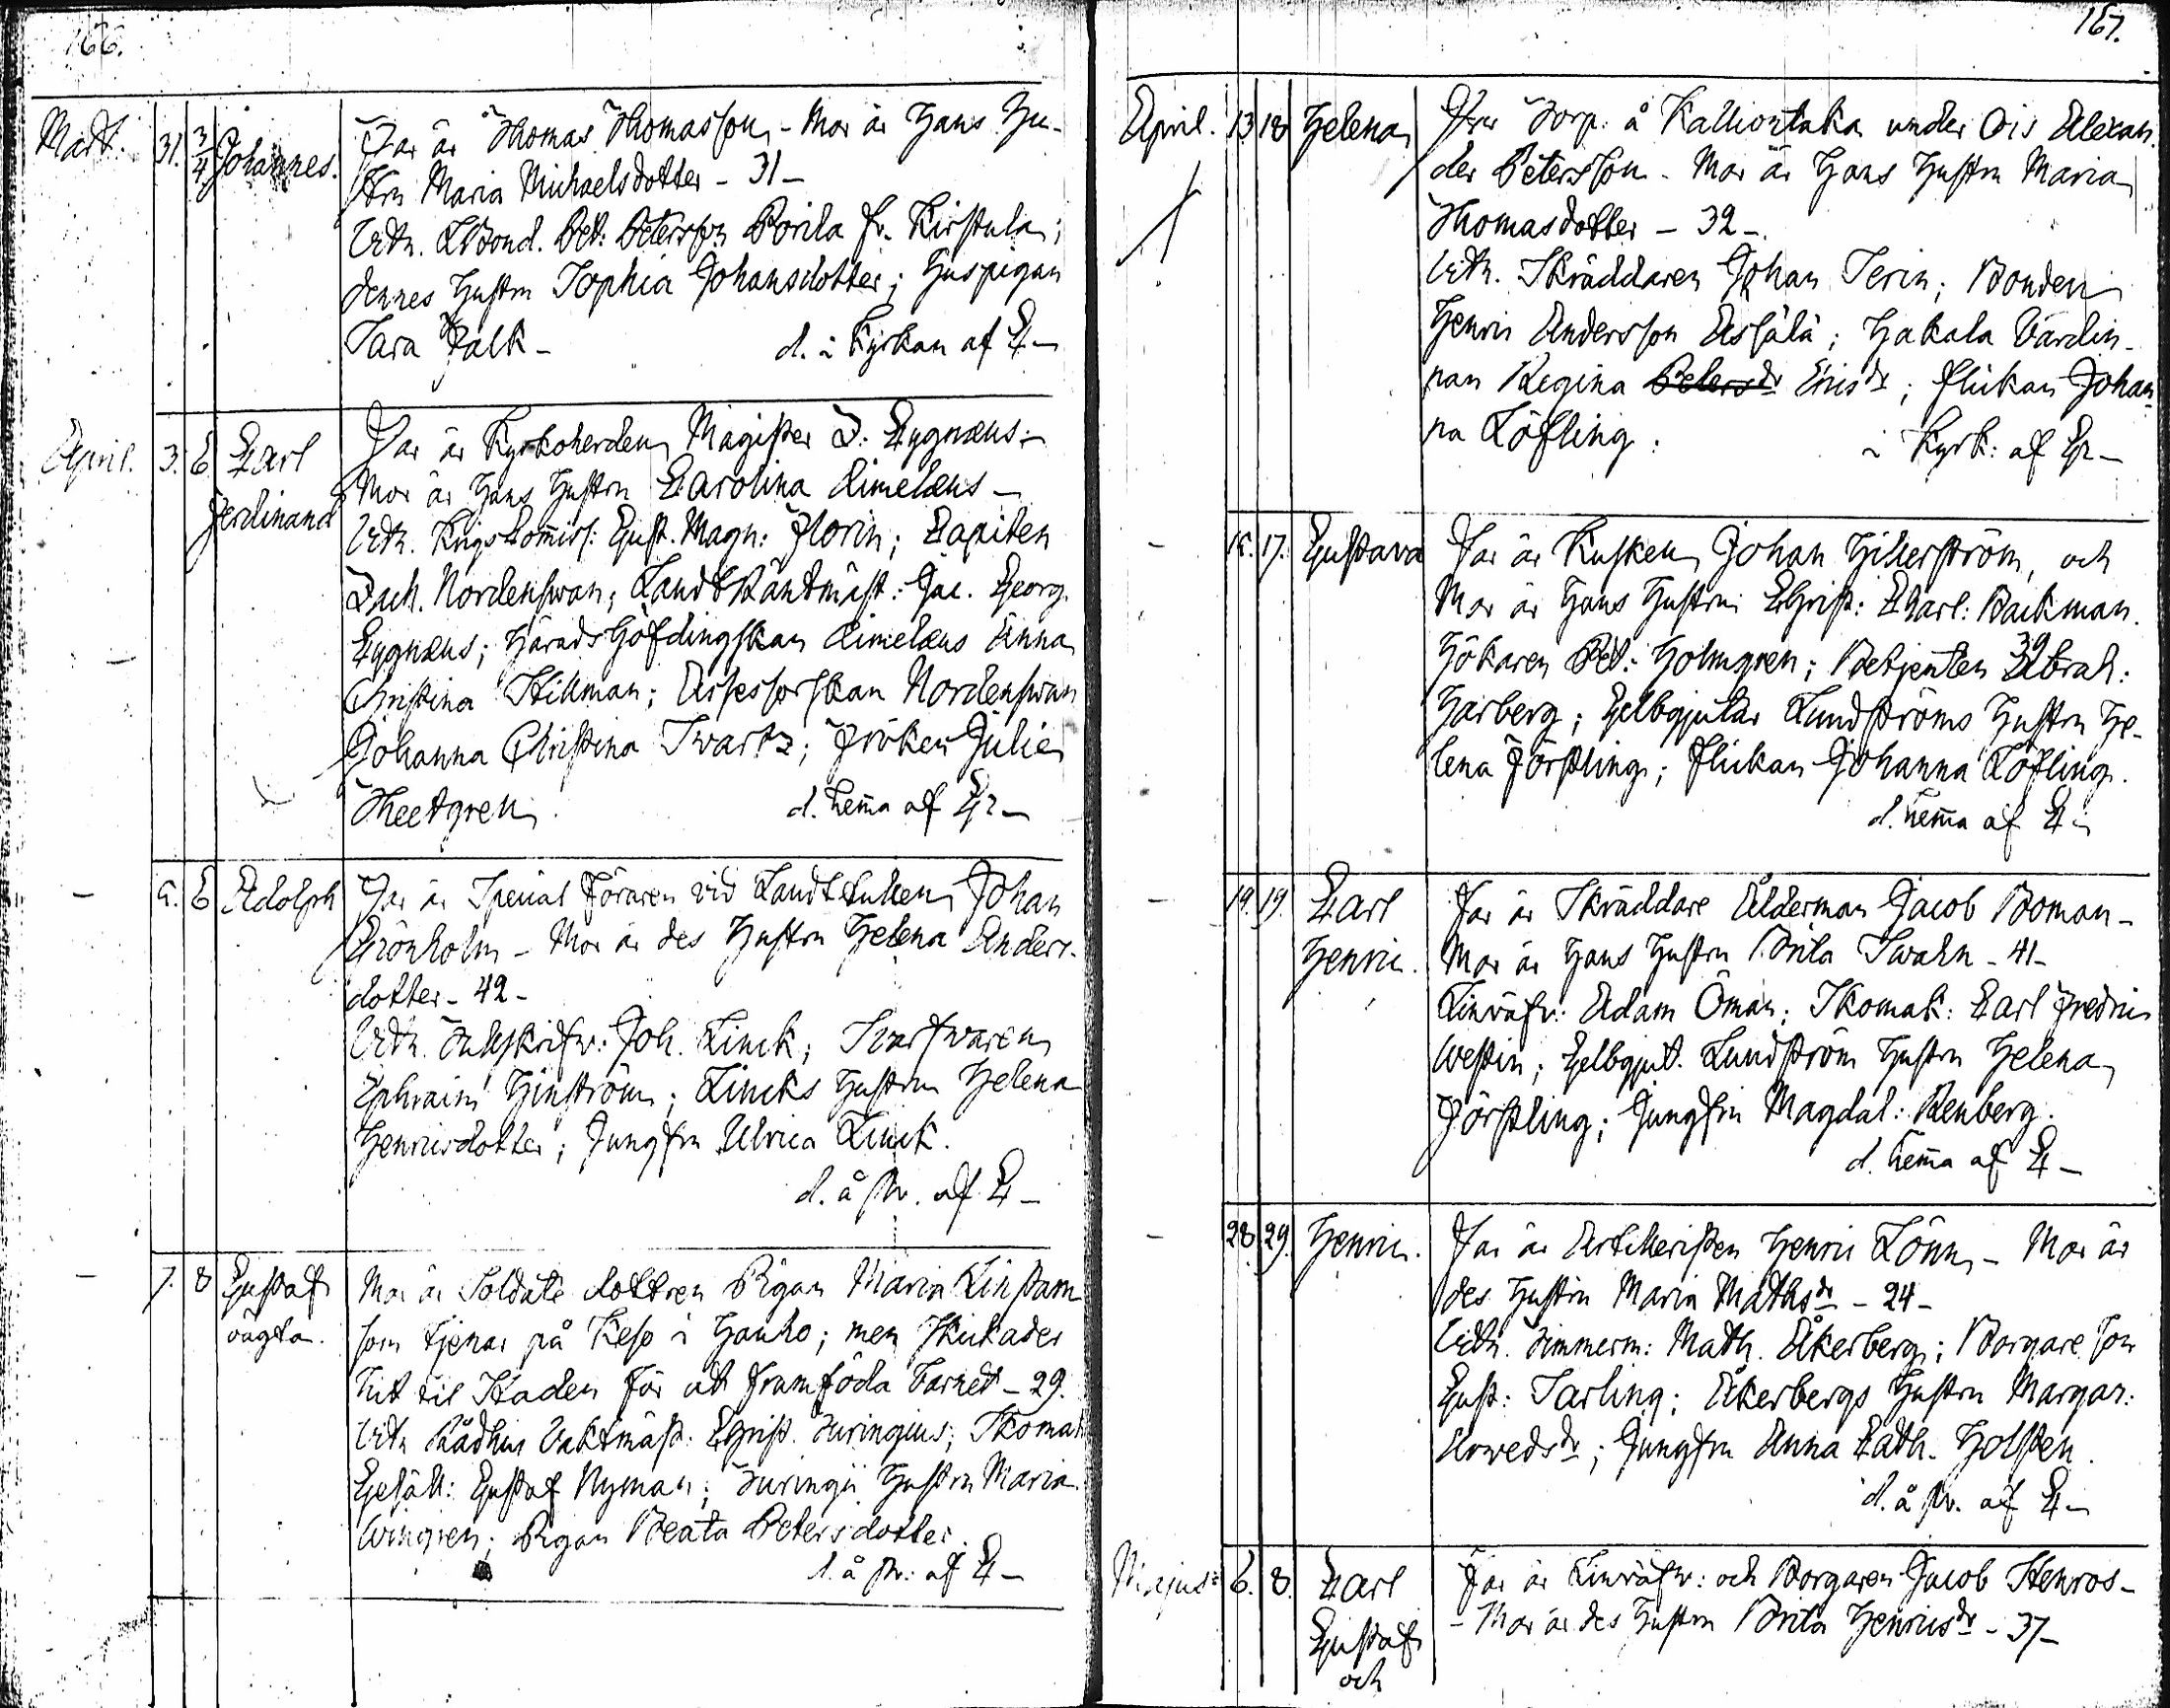 166.
Mart. 31. 3/4 Johannes. Far är Thomas Thomasson - Mor är Hans Hu-
stru Maria Michaelsdotter - 31 -
Vitn. LBond. Pet: Petersson Porila fr. Kirstula;
dennes Hustru Sophia Johansdotter; Huspigan
Sara Falk - d. i Kyrkan af C -
April. 3. 6 Carl Ferdinand Far är Kyrkoherden Magister Z. Cygnæus. -
Mor är Hans Hustru Carolina Aimelæus -
Vitn. KrigsCommiss: Gust. Magn: Florin; Capiten
Zach. Nordenswan; LandtRäntmäst: Jac. Georg.
Cygnæus; HäradsHöfdingskan Aimelæus Anna
Christina Stillman; Assessorskan Nordenswan
Johanna Christina Swartz; Fröken Julie
Theetgren. d. hema af
5. 6 Adolph Far är Special Föraren vid LandtTullen Johan
Grönholm - Mor är des Hustru Helena Anders-
dotter - 42 -
Vitn. Tullskrifv: Joh. Linck; Svarfwaren
Ephraim Hinström; Lincks Hustru Helena
Henricsdotter; Jungfru Ulrica Linck.
d. å pr. af C -
7. 8 Gustaf oägta. Mor är Soldate dottren Pigan Maria Linstam
som tjenar på Keso i Hauho; men skickades
hit til Staden för at framföda barnet - 29.
Vitn Rådhus Vaktmäst: Christ. Turingius; Skomak
Gesäll: Gustaf Nyman; Turingii Hustru Maria
Wingren; Pigan Beata Petersdotter.
d. å pr: af C -
167.
April. 13 18 Helena Torp: å Kalliontaka under Ois Alexan-
der Petersson - Mor är Hans Hustru Maria
Thomasdotter - 32 -
Vitn. Skräddaren Johan Serin; Bonden
Henric Andersson Assälä; Hakala Värdin-
nan Regina Petersdr Ericsdr; flickan Johan-
na Löfling. i Kyrk: af
17. Gustava Far är Kusken Johan Hillerström, och
Mor är Hans Hustru Christ: Charl: Backman.
39
Hökaren Pet: Holmgren; Betjenten Abrah:
Harberg; Gelbgjutar Lundströms Hustru He-
lena Förstling; flickan Johanna Löfling.
d. hema af C -
19. 19. Carl Henric. Far är Skräddare Ålderman Jacob Boman -
Mor är Hans Hustru Brita Swahn - 41 -
Linväfv: Adam Öman; Skomak: Carl Fredric
Westin; Gelbgjut. Lundström Hustru Helena
Förstling; Jungfru Magdal: Renberg.
d. hema af C -
28 29. Henric. Far är Artilleristen Henric Lönn - Mor är
des Hustru Maria Mathsdr - 24 -
Vitn. Timmerm: Math. Åkerberg; Borgare Son
Gust: Sarling; Åkerbergs Hustru Margar:
Arvedsdr; Jungfru Anna Cath. Holsten.
d. å pr. af C -
Majus: 6. 8. Carl Gustaf och Far är Linväfv: och Borgaren Jacob Stenros -
- Mor är des Hustru Brita Henricsdr - 37 -